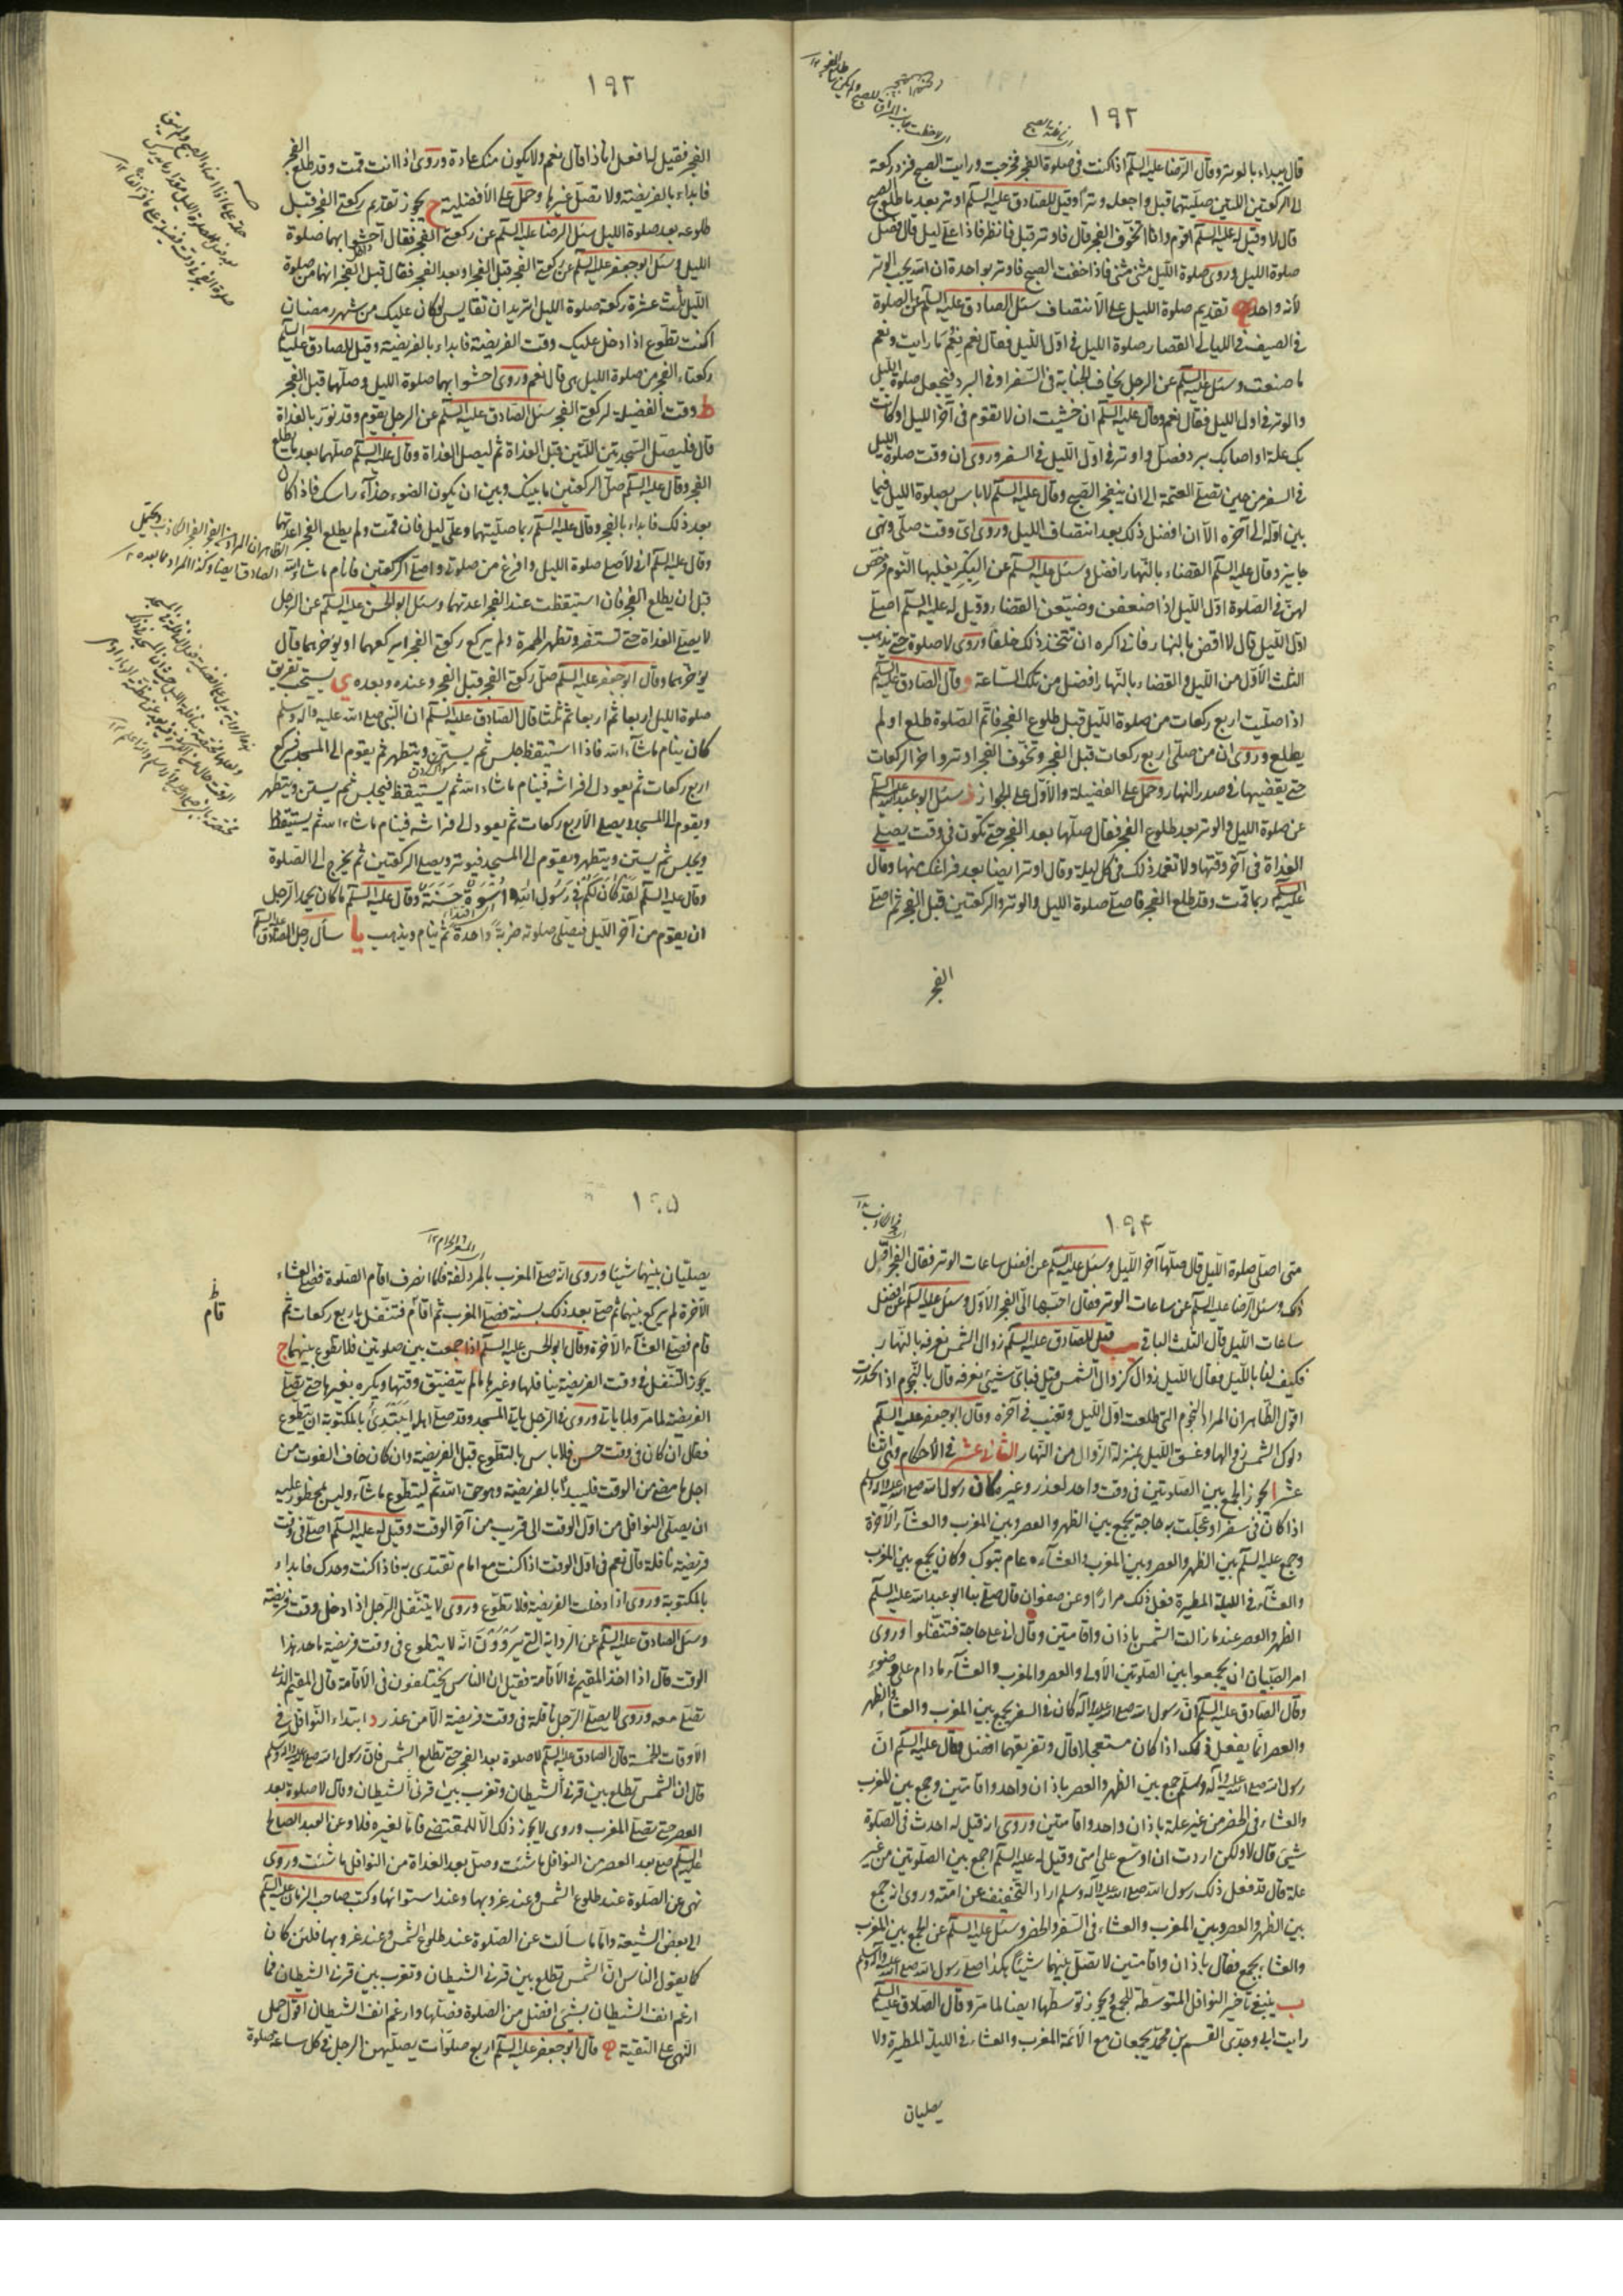 ١٩٢
قال يبداء بالوتر وقال الرضا عليه السلم اذا كنت فى صلوة الفجر فخرجت ورايت الصبح فزد ركعة
الى الركعتين اللتين صليتهما قبل واجعله وترا وقيل للصادق عليه السلم اوتر بعد ما طلع الصبح
قال لا وقيل له عليه السلم اقوم وانا اتخوف الفجر قال فاوتر قيل فانظر فاذا على ليل قال فصل
صلوة الليل وروى صلوة الليل مثنى مثنى فاذا خفت الصبح فاوتر بواحدة ان الله يحب الوتر
لانه واحد تقديم صلوة الليل على الانتصاف سئل الصادق عليه السلم عن الصلوة
فى الصيف فى الليالى القصار صلوة الليل فى اول الليل فقال نعم نعم ما رايت ونعم
ما صنعت وسئل عليه السلم عن الرجل يخاف الجنابة فى السفر او فى البرد فيعجل صلوة الليل
والوتر فى اول الليل فقال نعم وقال عليه السلم ان خشيت ان لا تقوم فى آخر الليل او كانت
بك علة او اصابك برد فصل واوتر فى اول الليل فى السفر وروى ان وقت صلوة الليل
فى السفر من حين تصلى العتمة الى ان ينفجر الصبح وقال عليه السلم لا باس بصلوة الليل فيما
بين اوله الى آخره الا ان افضل ذلك بعد انتصاف الليل وروى اى وقت صلى فهى
جايزة وقال عليه السلم القضاء بالنهار افضل وسئل عليه السلم عن البكر يغلبها النوم فرخص
لهن فى الصلوة اول الليل اذا ضعفن وضيعن القضاء وقيل له عليه السلم اصلى
اول الليل قال لا اقض بالنهار فانى اكره ان تتخذ ذلك خلقا وروى لا صلوة حتى يذهب
الثلث الاول من الليل والقضاء بالنهار افضل من تلك الساعة و قال الصادق عليه السلم
اذا صليت اربع ركعات من صلوة الليل قبل طلوع الفجر فاتم الصلوة طلع او لم
يطلع وروى ان من صلى اربع ركعات قبل الفجر وتخوف الفجر اوتر واخر الركعات
حتى يقضيها فى صدر النهار وحمل على الفضيلة والاول على الجواز ز سئل ابو عبد الله عليه السلم
عن صلوة الليل والوتر بعد طلوع الفجر فقال صلها بعد الفجر حتى تكون فى وقت يصلى
الغداة فى آخر وقتها ولا تعمد ذلك فى كل ليلة وقال اوتر ايضا بعد فراغك منها وقال
عليه السلم ربما قمت وقد طلع الفجر فاصلى صلوة الليل والوتر والركعتين قبل الفجر ثم اصلى
الفجر
١٩٣
الفجر فقيل له افعل انا ذا قال نعم ولا يكون منك عادة وروى اذا انت قمت وقد طلع الفجر
فابداء بالفريضة ولا تصل غيرها وحمل على الافضلية ح يجوز تقديم ركعتى الفجر قبل
طلوعه بعد صلوة الليل سئل الرضا عليه السلم عن ركعتى الفجر فقال احشوا بهما صلوة
الليل وسئل ابو جعفر عليه السلم عن ركعتى الفجر قبل الفجر او بعد الفجر فقال قبل الفجر انهما من صلوة
الليل ثلث عشرة ركعة صلوة الليل اتريد ان تقايس لو كان عليك من شهر رمضان
اكنت تطوع اذا دخل عليك وقت الفريضة فابداء بالفريضة وقيل للصادق عليه السلم
ركعتا الفجر من صلوة الليل هى قال نعم وروى احشوا بهما صلوة الليل وصلهما قبل الفجر
ط وقت الفضيلة لركعتى الفجر سئل الصادق عليه السلم عن الرجل يقوم وقد نور بالغداة
قال فليصل السجدتين اللتين قبل الغداة ثم ليصل الغداة وقال عليه السلم صلهما بعد ما يطلع
الفجر وقال عليه السلم صل الركعتين ما بينك وبين ان يكون الضوء حذاء راسك فاذا كان
بعد ذلك فابداء بالفجر وقال عليه السلم ربما صليتهما وعلى ليل فان قمت ولم يطلع الفجر اعدتهما
وقال عليه السلم انى لاصلى صلوة الليل وافرغ من صلوتى واصلى الركعتين فانام ما شاء الله
قبل ان يطلع الفجر فان استيقظت عند الفجر اعدتهما وسئل ابو الحسن عليه السلم عن الرجل
لا يصلى الغداة حتى تسفر وتظهر الحمرة ولم يركع ركعتى الفجر ايركعهما او يؤخرهما قال
يؤخرهما وقال ابو جعفر عليه السلم صل ركعتى الفجر قبل الفجر وعنده وبعده ى يستحب تفريق
صلوة الليل اربعا ثم اربعا ثم ثلثا قال الصادق عليه السلم ان النبى صلى الله عليه وآله وسلم
كان ينام ما شاء الله فاذا استيقظ جلس ثم يستن ويتطهر ثم يقوم الى المسجد فيركع
اربع ركعات ثم يعود الى فراشه فينام ما شاء الله ثم يستيقظ فيجلس ثم يستن ويتطهر
ويقوم الى المسجد ويصلى الاربع ركعات ثم يعود الى فراشه فينام ما شاء الله ثم يستيقظ
ويجلس ثم يستن ويتطهر ويقوم الى المسجد فيوتر ويصلى الركعتين ثم يخرج الى الصلوة
وقال عليه السلم لَقَدْ كَانَ لَكُمْ فِى رَسُولِ اللهِ اُسْوَةٌ حَسَنَةٌ وقال عليه السلم ما كان يحمد الرجل
ان يقوم من آخر الليل فيصلى صلوته ضربة واحدة ثم ينام ويذهب يا سأل رجل الصادق عليه السلم
١٩۴
متى اصلى صلوة الليل قال صلها آخر الليل وسئل عليه السلم عن افضل ساعات الوتر فقال الفجر اول
ذلك وسئل الرضا عليه السلم عن ساعات الوتر فقال احبها الى الفجر الاول وسئل عليه السلم عن افضل
ساعات الليل قال الثلث الباقى يب قيل للصادق عليه السلم زوال الشمس نعرفه بالنهار
فكيف لنا بالليل فقال لليل زوال كزوال الشمس قيل فباى شيئ نعرفه قال بالنجوم اذا انحدرت
اقول الظاهر ان المراد النجوم التى طلعت اول الليل وتغيب فى آخره وقال ابو جعفر عليه السلم
دلوك الشمس زوالها وغسق الليل بمنزلة الزوال من النهار الثانى عشر فى الاحكام وهى اثنا
عشر ا يجوز الجمع بين الصلوتين فى وقت واحد لعذر وغيره كان رسول الله صلى الله عليه وآله وسلم
اذا كان فى سفر او عجلت به حاجة يجمع بين الظهر والعصر وبين المغرب والعشاء الآخرة
وجمع عليه السلم بين الظهر والعصر وبين المغرب والعشاء عام تبوك وكان يجمع بين المغرب
والعشاء فى الليلة المطيرة فعل ذلك مرارا وعن صفوان قال صلى بنا ابو عبد الله عليه السلم
الظهر والعصر عند ما زالت الشمس باذان واقامتين وقال انى على حاجة فتنفلوا وروى
امر الصبيان ان يجمعوا بين الصلوتين الاولى والعصر والمغرب والعشاء ما دام على وضوء
وقال الصادق عليه السلم ان رسول الله صلى الله عليه وآله كان فى السفر يجمع بين المغرب والعشاء والظهر
والعصر انما يفعل ذلك اذا كان مستعجلا قال وتفريقهما افضل وقال عليه السلم ان
رسول الله صلى الله عليه وآله وسلم جمع بين الظهر والعصر باذان واحد واقامتين وجمع بين المغرب
والعشاء فى الحضر من غير علة باذان واحد واقامتين وروى انه قيل له احدث فى الصلوة
شيئ قال لا ولكن اردت ان اوسع على امتى وقيل له عليه السلم اجمع بين الصلوتين من غير
علة قال قد فعل ذلك رسول الله صلى الله عليه وآله وسلم اراد التخفيف عن امته وروى انه جمع
بين الظهر والعصر وبين المغرب والعشاء فى السفر والحضر وسئل عليه السلم عن الجمع بين المغرب
والعشاء بجمع فقال باذان واقامتين لا تصل بينهما شيئا هكذا صلى رسول الله صلى الله عليه وآله وسلم
ب ينبغى تأخير النوافل المتوسطة للجمع ويجوز توسطها ايضا لما مر وقال الصادق عليه السلم
رايت ابى وجدى القسم بن محمد يجمعان مع الائمة المغرب والعشاء فى الليلة المطيرة ولا
يصليان
١٩۵
يصليان بينهما شيئا وروى انه صلى المغرب بالمزدلفة فلما انصرف اقام الصلوة فصلى العشاء
الآخرة لم يركع بينهما ثم صلى بعد ذلك بسنة فصلى المغرب ثم اقام فتنفل باربع ركعات ثم
قام
قام فصلى العشاء الآخرة وقال ابو الحسن عليه السلم اذا جمعت بين صلوتين فلا تطوع بينهما ج
يجوز التنفل فى وقت الفريضة بنافلها وغيرها ما لم يتضيق وقتها ويكره بغيرها حتى يصلى
الفريضة لما مر ولما ياتى وروى فى الرجل ياتى المسجد وقد صلى اهله ايَبْتَدِئُ بالمكتوبة او يتطوع
فقال ان كان فى وقت حسن فلا باس بالتطوع قبل الفريضة وان كان خاف الفوت من
اجل ما مضى من الوقت فليبدأ بالفريضة وهو حق الله ثم ليتطوع ما شاء وليس بمحظور عليه
ان يصلى النوافل من اول الوقت الى قريب من آخر الوقت وقيل له عليه السلم اصلى فى وقت
فريضة نافلة قال نعم فى اول الوقت اذا كنت مع امام تقتدى به فاذا كنت وحدك فابداء
بالمكتوبة وروى اذا دخلت الفريضة فلا تطوع وروى لا يتنفل الرجل اذا دخل وقت فريضة
وسئل الصادق عليه السلم عن الرواية التى يَرْوُوْنَ انه لا يتطوع فى وقت فريضة ما حد هذا
الوقت قال اذا اخذ المقيم فى الاقامة فقيل ان الناس يختلفون فى الاقامة قال المقيم الذى
تصلى معه وروى لا يصلى الرجل نافلة فى وقت فريضة الا من عذر د ابتداء النوافل فى
الاوقات الخمسة قال الصادق عليه السلم لا صلوة بعد الفجر حتى تطلع الشمس فان رسول الله صلى الله عليه وآله وسلم
قال ان الشمس تطلع بين قرنى الشيطان وتغرب بين قرنى الشيطان وقال لا صلوة بعد
العصر حتى تصلى المغرب وروى لا يجوز ذلك الا للمقتضى فاما لغيره فلا وعن العبد الصالح
عليه السلم صل بعد العصر من النوافل ما شئت وصل بعد الغداة من النوافل ما شئت وروى
نهى عن الصلوة عند طلوع الشمس وعند غروبها وعند استوائها وكتب صاحب الزمان عليه السلم
الى بعض الشيعة واما ما سألت عن الصلوة عند طلوع الشمس وعند غروبها فلئن كان
كما يقول الناس ان الشمس تطلع بين قرنى الشيطان وتغرب بين قرنى الشيطان فما
ارغم انف الشيطان بشيئ افضل من الصلوة فصلها وارغم انف الشيطان اقول حمل
النهى على التقية ه قال ابو جعفر عليه السلم اربع صلوات يصليهن الرجل فى كل ساعة صلوة